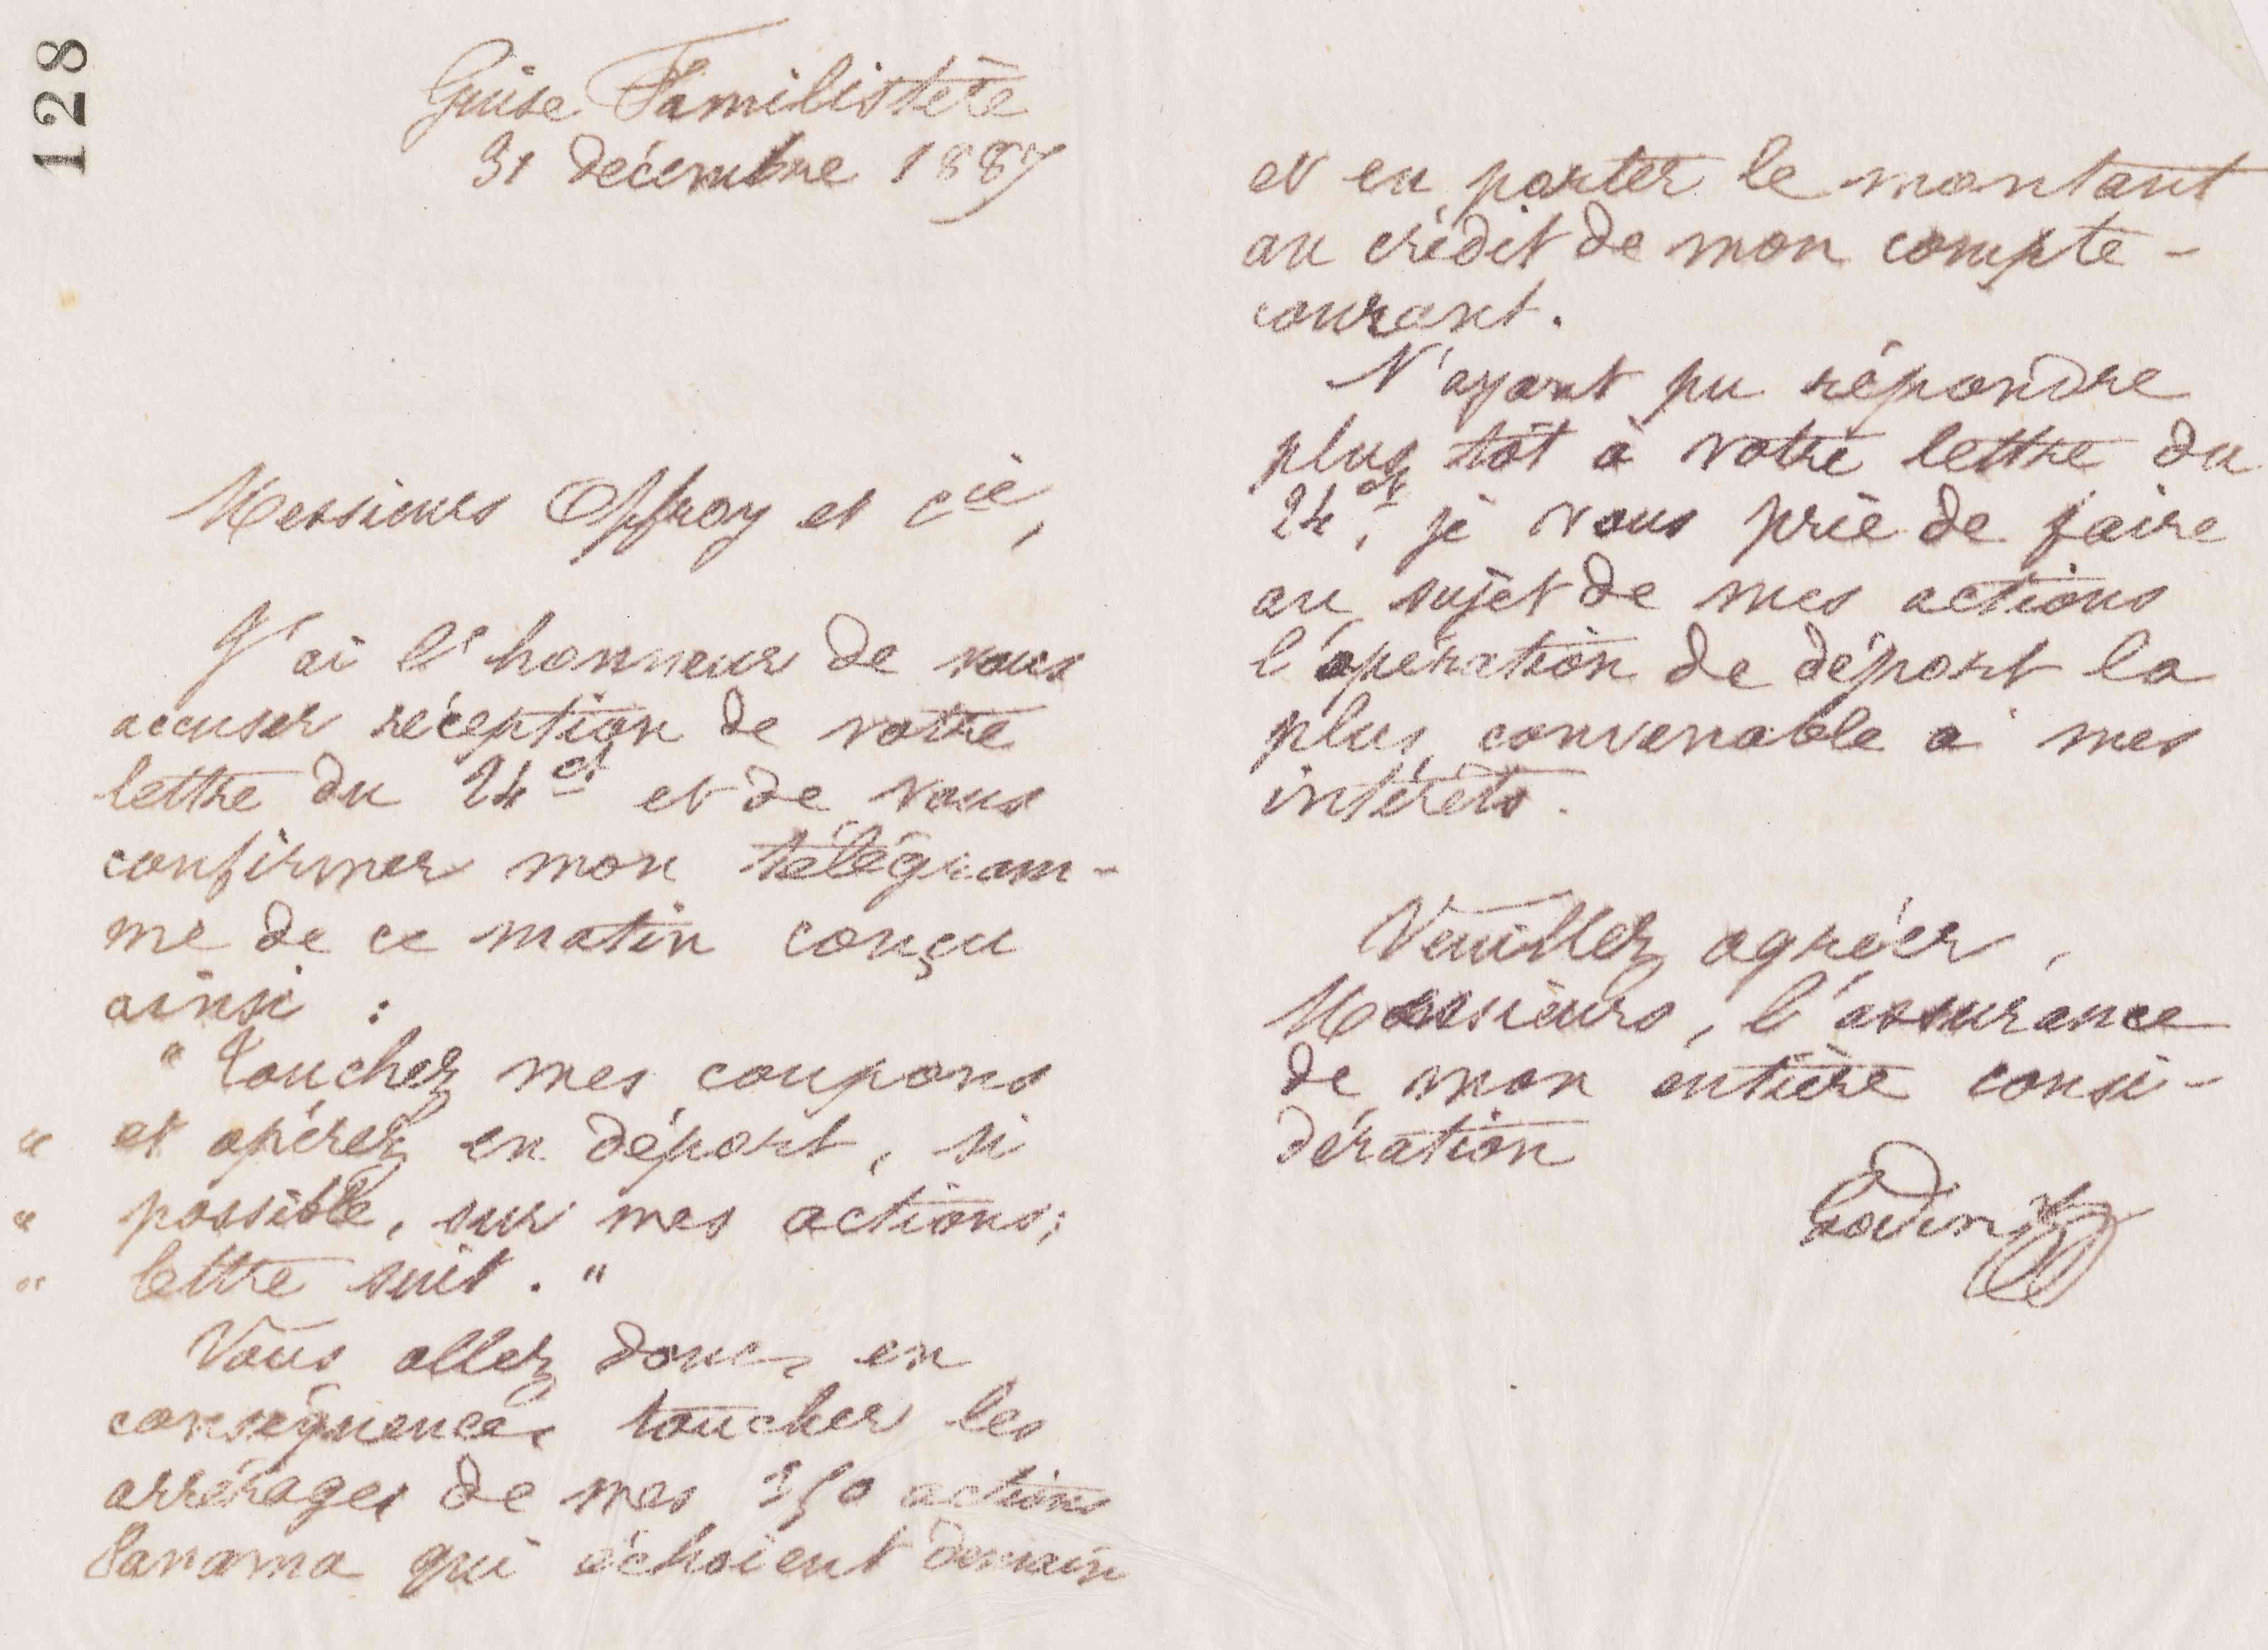 128
Guise Familistère
31 décembre 1887
Messieurs Offroy et Cie,
J'ai l'honneur de vous
accuser réception de votre
lettre du 24 ct et de vous
confirmer mon télégram-
me de ce matin conçu
ainsi :
" Touchez mes coupons
" et opérez en déport, si
" possible, sur mes actions;
" lettre suit. "
Vous allez donc, en
conséquence, toucher les
arrérages de mes 350 actions
Panama qui échoient demain
et en porter le montant
au crédit de mon compte-
courant.
N'ayant pu répondre
plus tôt à votre lettre du
24 ct, je vous prie de faire
au sujet de mes actions
l'opération de déport la
plus convenable à mes
intérêts.
Veuillez agréer,
Messieurs, l'assurance
de mon entière consi-
dération
Godin